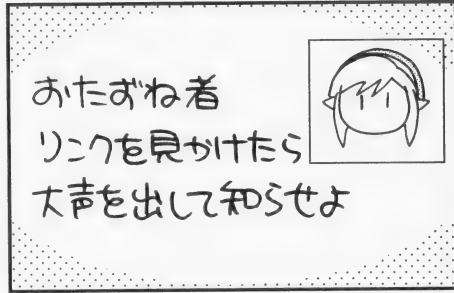 おたずね者
リンクを見かけたら
大声を出して知らせよ